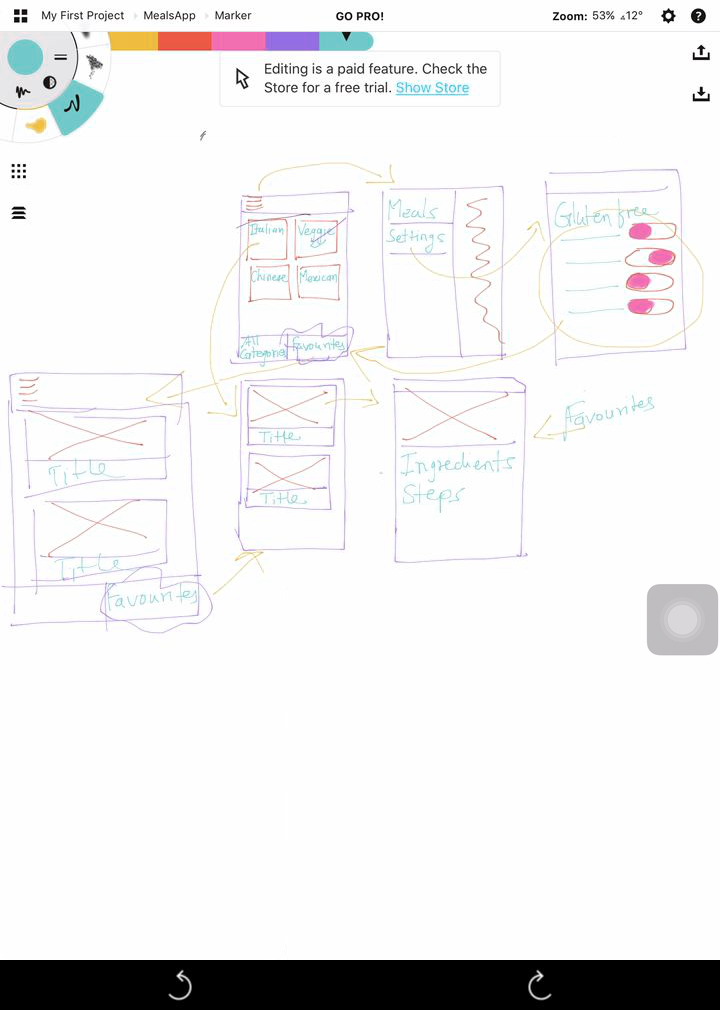 My First Project
MealsApp
Marker
GO PRO!
Zoom: 53% ⊿12°
Editing is a paid feature. Check the
Store for a free trial. Show Store
Italian
Veggie
Chinese
Mexican
All
Categories
Favourites
Meals
Settings
Gluten free
Title
Title
Favourites
Title
Title
Ingredients
Steps
Favourites